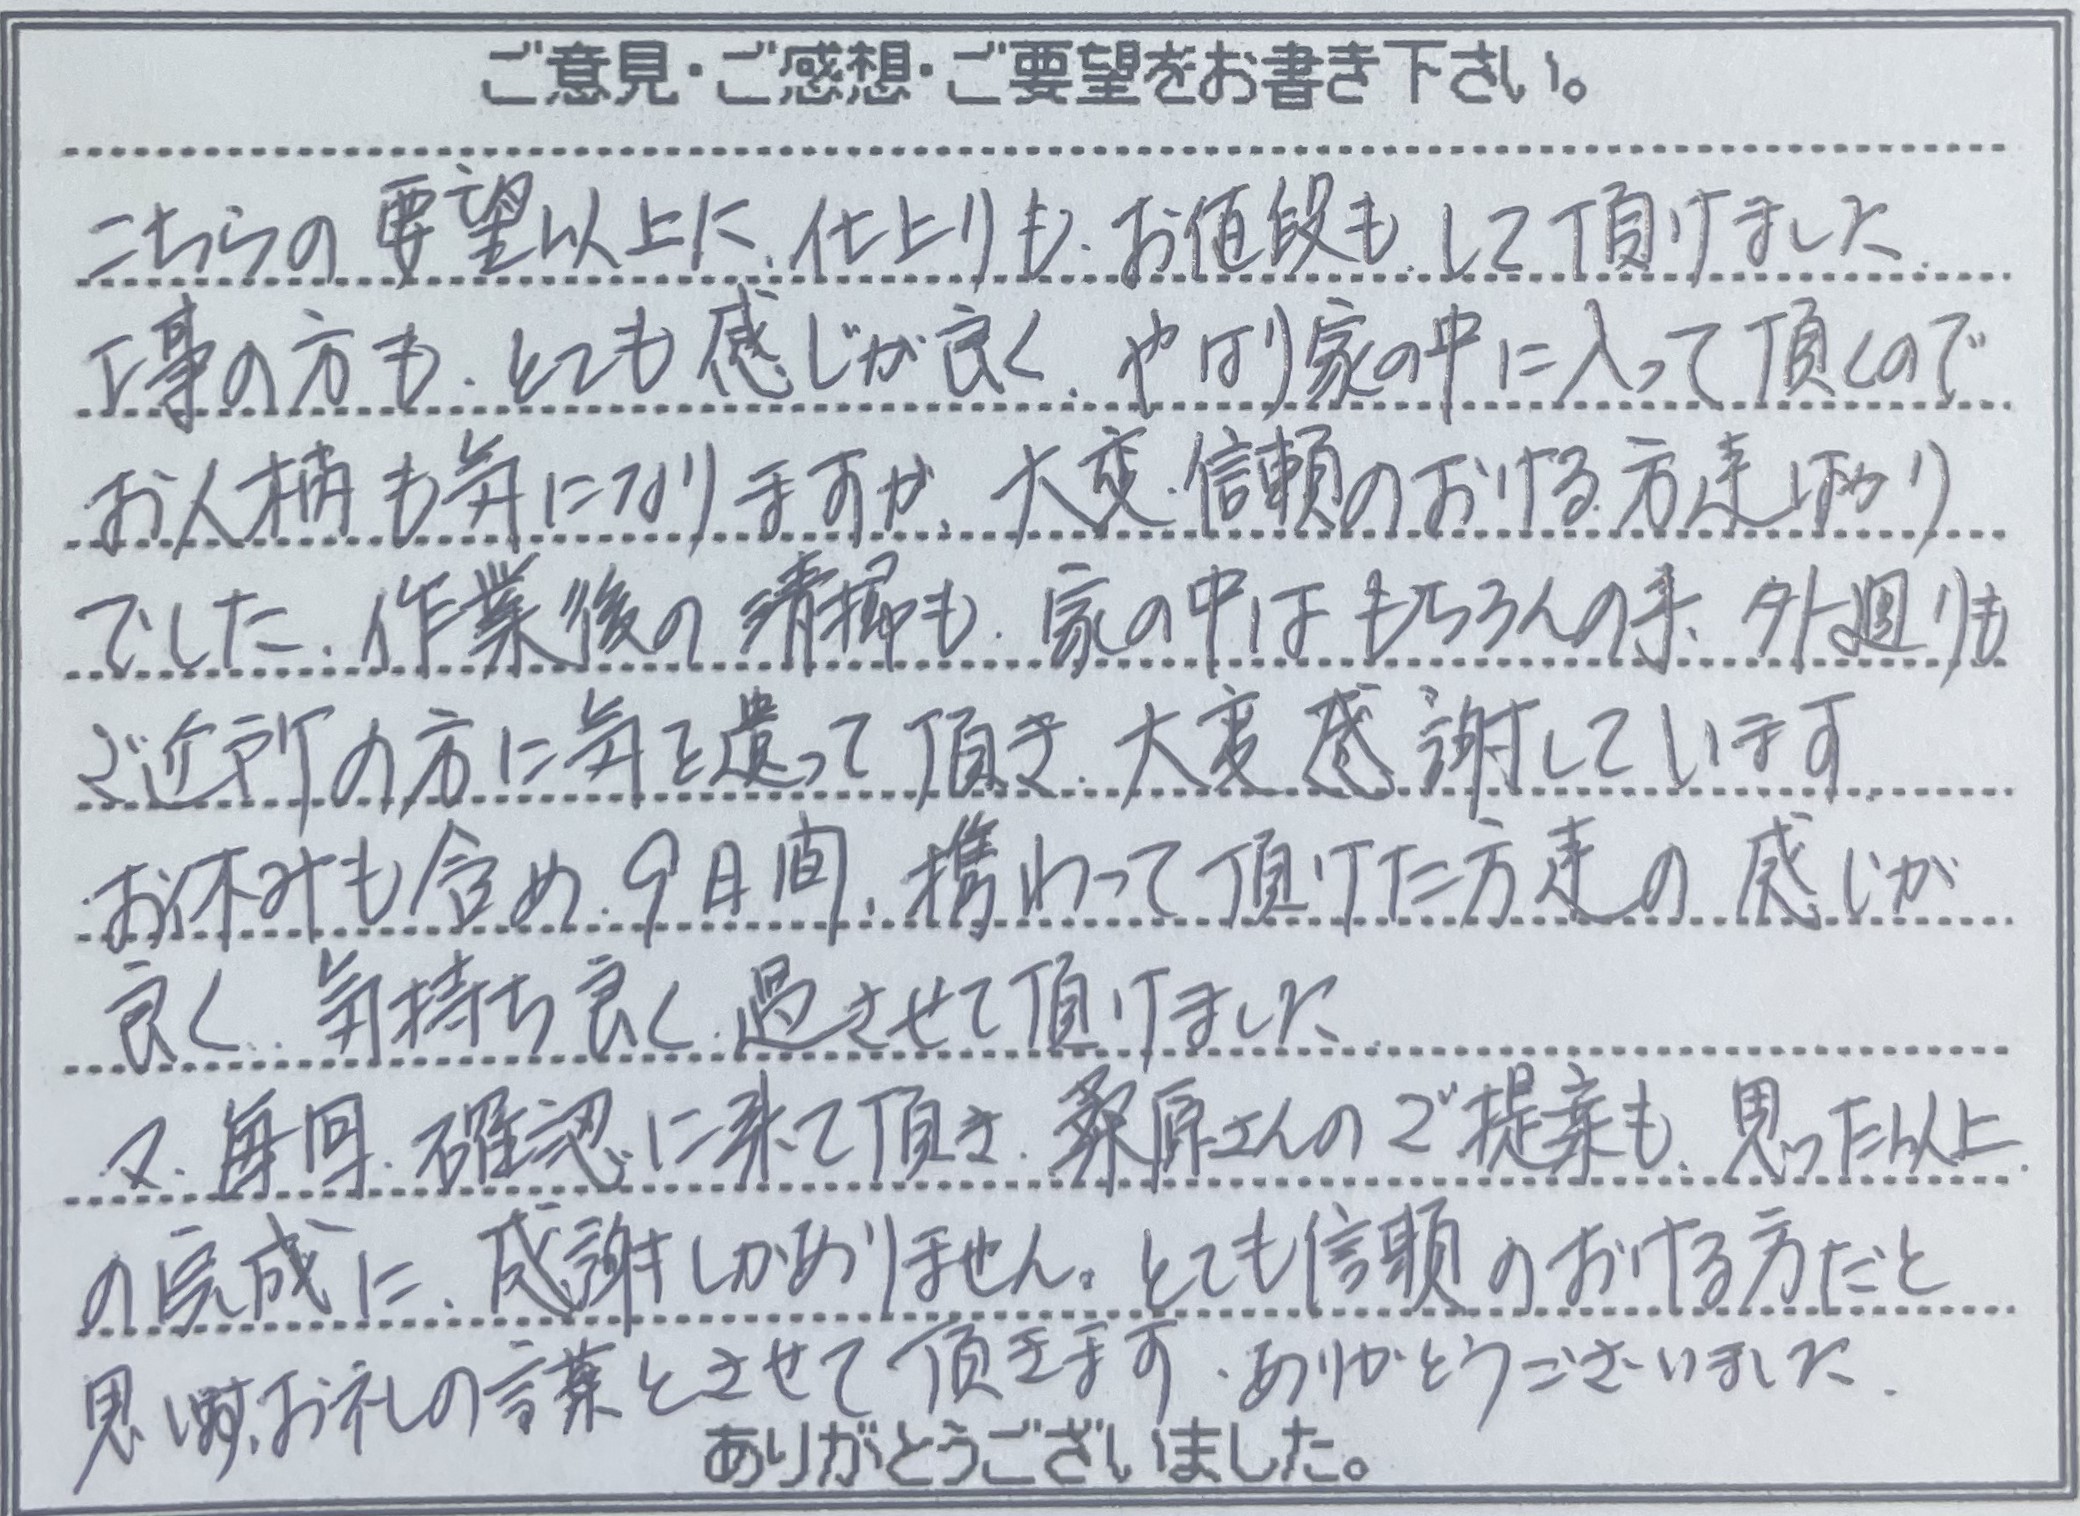 ご意見・ご感想・ご要望をお書き下さい。
こちらの要望以上に、仕上りも、お値段も、して頂けました。
工事の方も、とても感じが良く、やはり家の中に入って頂くので
お人柄も気になりますが、大変、信頼のおける方達ばかり
でした。作業後の清掃も、家の中はもちろんの事、外週りも
ご近所の方に気を遣って頂き、大変感謝しています。
お休みも含め、9日間、携わって頂けた方達の感じが
良く、気持ち良く、過させて頂けました。
又、毎回、確認に来て頂き、桑原さんのご提案も、思った以上
の完成に、感謝しかありません。とても信頼のおける方だと
思います。お礼の言葉とさせて頂きます。ありがとうございました。
ありがとうございました。